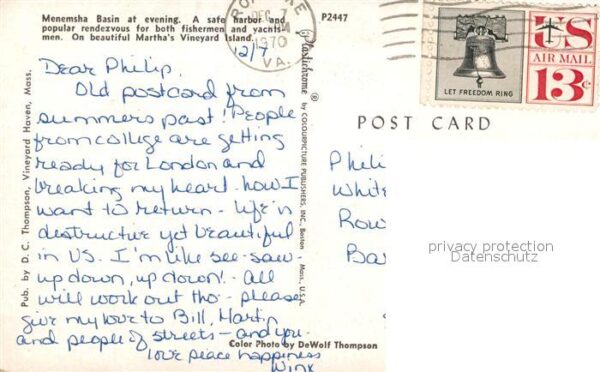 Menemsha Basin at evening. A safe harbor and
popular rendezvous for both fishermen and yachts-
men. On beautiful Martha's Vineyard Island.
P2447
DEC 7
1970
VA.
12/7
Dear Philip,
Old postcard from
summers past! People
from college are getting
ready for London and
breaking my heart. how I
want to return - life is
destructive yet beautiful
in US. I'm like see-saw-
up down, up down! - all
will work out tho - please
give my love to Bill, Martin
and people of streets - and you.
love peace happiness
Wink
Color Photo by DeWolf Thompson
Pub. by D. C. Thompson, Vineyard Haven, Mass.
Plastichrome ® by COLOURPICTURE PUBLISHERS, INC., Boston Mass., U.S.A.
LET FREEDOM RING
US
AIR MAIL
13¢
POST CARD
Phili
White
Row
Ba
privacy protection
Datenschutz